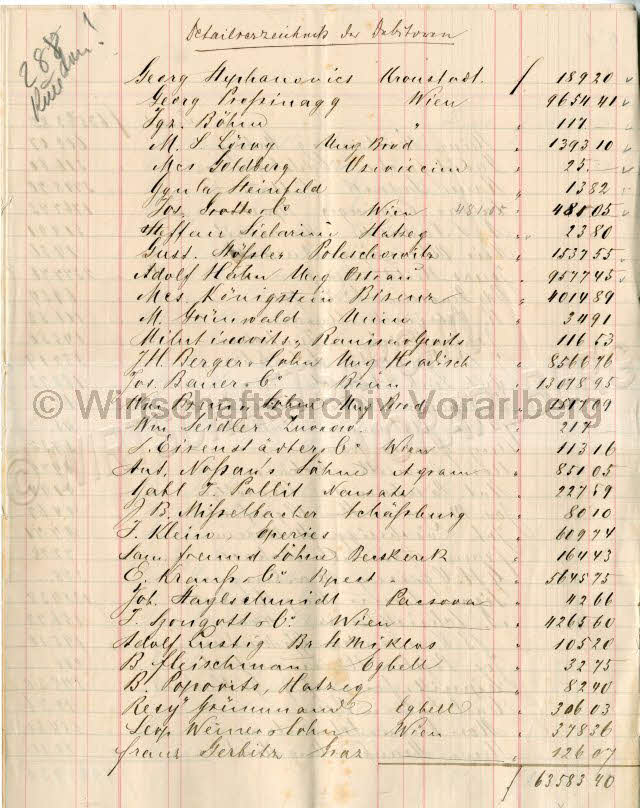 288
Detailverzeichniss der Debitoren
Georg Stephanovics Kronstadt. f 189 20
Georg Prossinagg Wien 9654 41
Igz. Böhm " 117
M. S. Löwy Ung Brod 1393 10
Mcs Goldberg Oswiecim 25
Gyula Steinfeld 13 82
Jos. Grotte & Co Wien 481.05 481 05
Steffan Sidarin Hatzeg 23 80
Gust. Stössler Poleschowitz 1537 55
Adolf Hahn Ung Ostrau 9577 45
Mcs. Königstein Bisenz 4014 89
M. Grünwald 34 91
116 53
J H. Berger & Sohn Ung Hradisch 8560 76
Jos. Bauer & Co Brünn 13078 95
Sohn Ung Brod
Wm Seidler 217
S. Eisenstädter & Co Wien 113 16
Ant. Nossan's Söhne Agram 851 05
Gabl. T. Pollit Neusatz 227 59
J B. Misselbacher Schässburg 80 10
J. Klein Eperies 609 74
Sam Freund Söhne Becskerek 164 43
E. Krauss & Co Bpest 5645 75
Joh. Haylschmidt Pacsova 42 66
T. Gongott & Co Wien 4265 60
Adolf Lustig Br. St Miklos 105 20
B Fleischman Egbell 32 75
B. Popovits, Hatzeg 82 40
Resy Grünmandl Egbell 306 03
Leop Weiner & Sohn Wien 378 36
Franz Gerbitz Graz 126 07
f 63583 40
© Wirtschaftsarchiv Vorarlberg